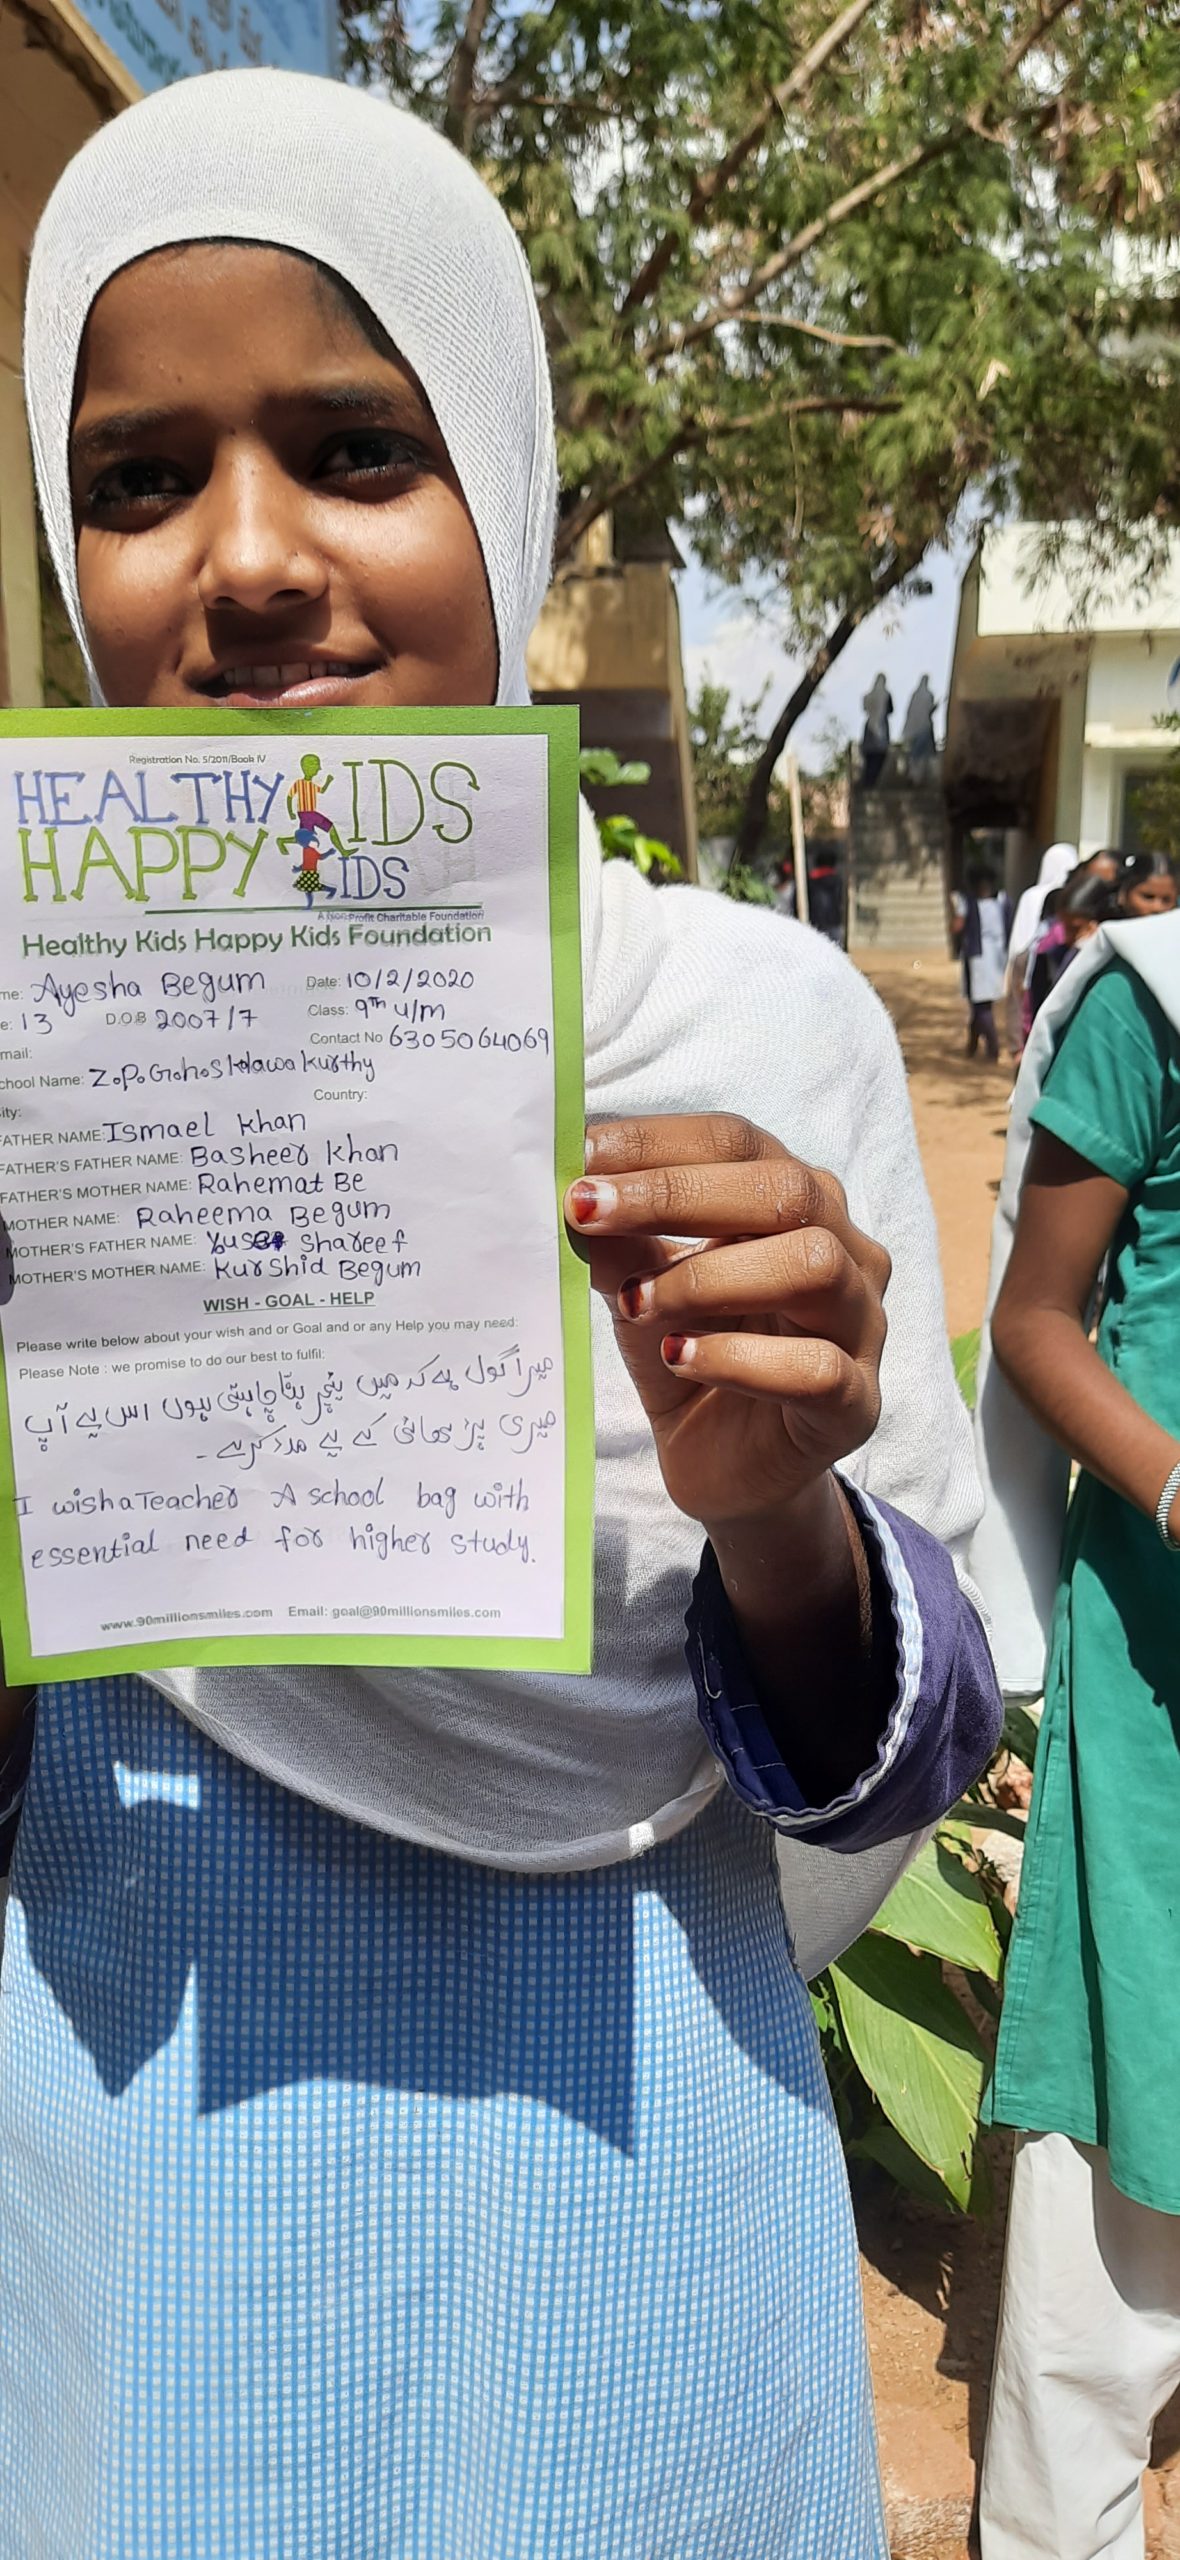 Registration No. 5/2011/Book IV
HEALTHY KIDS
HAPPY KIDS
A Non-Profit Charitable Foundation
Healthy Kids Happy Kids Foundation
me: Ayesha Begum Date: 10/2/2020
e: 13 D.O.B 2007/7 Class: 9th u/m
mail: Contact No 6305064069
chool Name: Z.P.G.H.S kalawakurthy
ity: Country:
FATHER NAME: Ismael khan
FATHER'S FATHER NAME: Basheer khan
FATHER'S MOTHER NAME: Rahemat Be
MOTHER NAME: Raheema Begum
MOTHER'S FATHER NAME: Shareef
MOTHER'S MOTHER NAME: Kurshid Begum
WISH - GOAL - HELP
Please write below about your wish and or Goal and or any Help you may need:
Please Note : we promise to do our best to fulfil:
میرا گول ہے کہ میں ٹیچر بننا چاہتی ہوں اس لیے آپ
میری پڑھائی کے لیے مدد کریے -
I wish a Teacher A school bag with
essential need for higher study.
www.90millionsmiles.com Email: goal@90millionsmiles.com